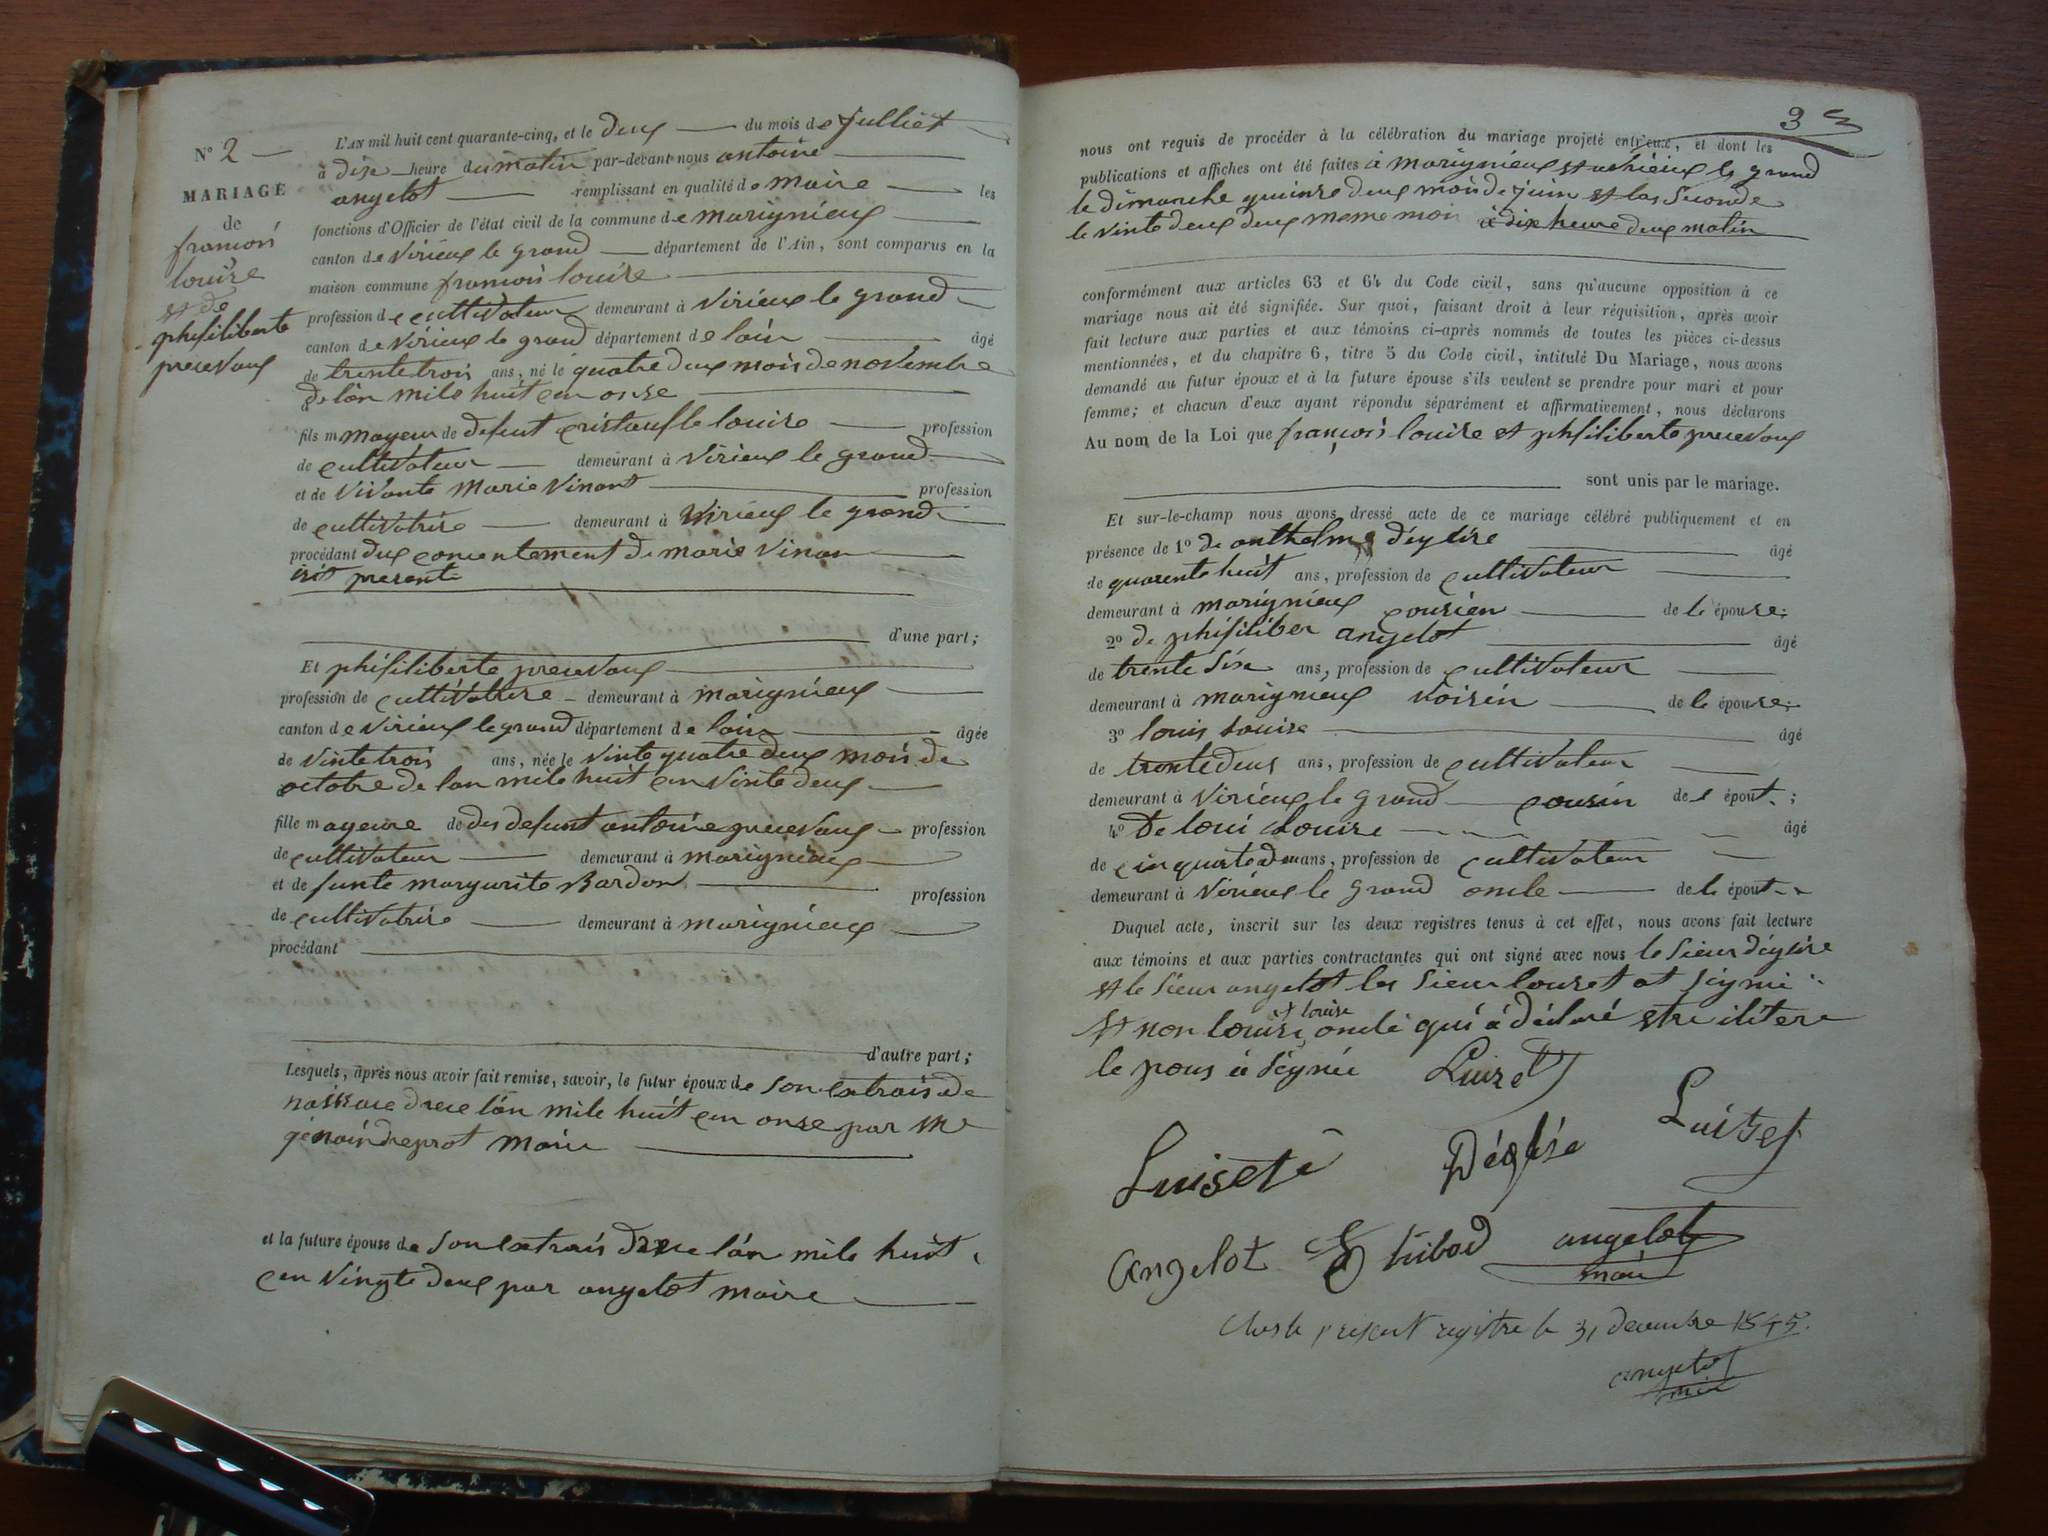 N° 2
MARIAGE
de
françois
louise
et de
phisiliberte
precevaux
L'AN mil huit cent quarante-cinq, et le deux du mois de julliet
à dise heure du matin par-devant nous antoine
angelot remplissant en qualité de maire les
fonctions d'Officier de l'état civil de la commune de marignieux
canton de virieux le grand département de l'Ain, sont comparus en la
maison commune françois louise
profession de cultivateur demeurant à virieux le grand
canton de virieux le grand département de lain âgé
de trente trois ans, né le quatre deux mois de novembre
de lan mile huit cen onse
fils mmayeur de defunt cristoufle louise profession
de cultivateur demeurant à virieux le grand
et de vivante marie vinant profession
de cultivatrise demeurant à virieux le grand
procédant dux concentement de marie vinan
isit presente
d'une part;
Et phisiliberte precevaux
profession de cultivatrise demeurant à marignieux
canton de virieux le grand département de lain âgée
de vinte trois ans, née le vinte quatre deux mois de
octobre de lan mile huit cen vinte deux
fille mayeure de des defunt antoine precevaux profession
de cultivateur demeurant à marignieux
et de funte margurite Bardon profession
de cultivatrise demeurant à marignieux
procédant
d'autre part;
Lesquels, après nous avoir fait remise, savoir, le futur époux de son extrais de
naissance lan mile huit cen onse par me
maire
et la future épouse de son extrais lan mile huit
cen vingte deux par angelot maire
3
nous ont requis de procéder à la célébration du mariage projeté entr'eux, et dont les
publications et affiches ont été faites à marignieux et a virieux le grand
le dimanche quinse deux mois de juin et las seconde
le vinte deux deux meme mois à dix heure deux matin
conformément aux articles 63 et 64 du Code civil, sans qu'aucune opposition à ce
mariage nous ait été signifiée. Sur quoi, faisant droit à leur réquisition, après avoir
fait lecture aux parties et aux témoins ci-après nommés de toutes les pièces ci-dessus
mentionnées, et du chapitre 6, titre 5 du Code civil, intitulé Du Mariage, nous avons
demandé au futur époux et à la future épouse s'ils veulent se prendre pour mari et pour
femme; et chacun d'eux ayant répondu séparément et affirmativement, nous déclarons
Au nom de la Loi que françois louise et phisiliberte precevaux
sont unis par le mariage.
Et sur-le-champ nous avons dressé acte de ce mariage célébré publiquement et en
présence de 1° de anthelme déglise âgé
de quarente huit ans, profession de cultivateur
demeurant à marignieux cousien de lé épouse;
2° de phisiliber angelot âgé
de trente six ans, profession de cultivateur
demeurant à marignieux voisin de lé épouse;
3° louis louise âgé
de trentedeus ans, profession de cultivateur
demeurant à virieux le grand cousin de l épout;
4° De loui Louise âgé
de ans, profession de cultivateur
demeurant à virieux le grand oncle de lé épout
Duquel acte, inscrit sur les deux registres tenus à cet effet, nous avons fait lecture
aux témoins et aux parties contractantes qui ont signé avec nous le sieur déglise
et le sieur angelot les sieur louset et signie
et non louise + louise oncle qui à déclaré etre ilitere
le pous à signée Luizet
Luiset Déglise Luizet
angelot thibod angelot
maire
Clos le présent registre le 31 decembre 1845.
angelot
maire